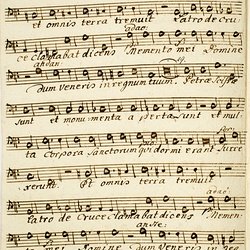 et omnis terra tremuit Latro de Cru
adag
ce clamabat dicens Memento mei Domine
andan
dum veneris in regnum tuum. Petrae scissae
sunt et monumenta aperta sunt et mul
ta Corpora Sanctorum qui dormierant surre
xerunt. Et omnis terra tremuit
adag
Latro de Cruce clamabat dicens Memen
andte
mei Domine dum veneris in